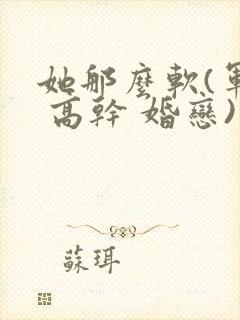 她那麼軟(軍
高幹 婚戀)
蘇珥